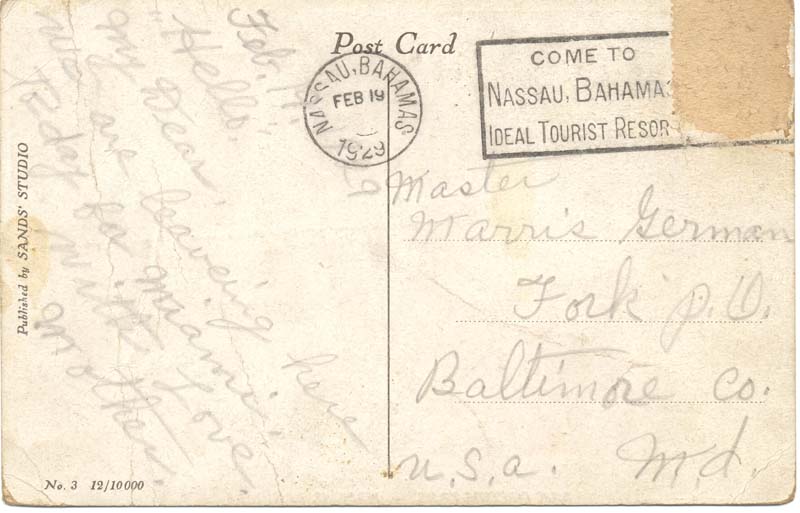 Post Card
NASSAU, BAHAMAS
FEB 19
1929
COME TO
NASSAU, BAHAMA
IDEAL TOURIST RESOR
Feb. 19
"Hello"
my Dear,
we are leaving here
today for Miami.
with Love.
Mother.
Master
Morris German
Fork P.O.
Baltimore Co.
U.S.A. Md.
Published by SANDS' STUDIO
No. 3 12/10000